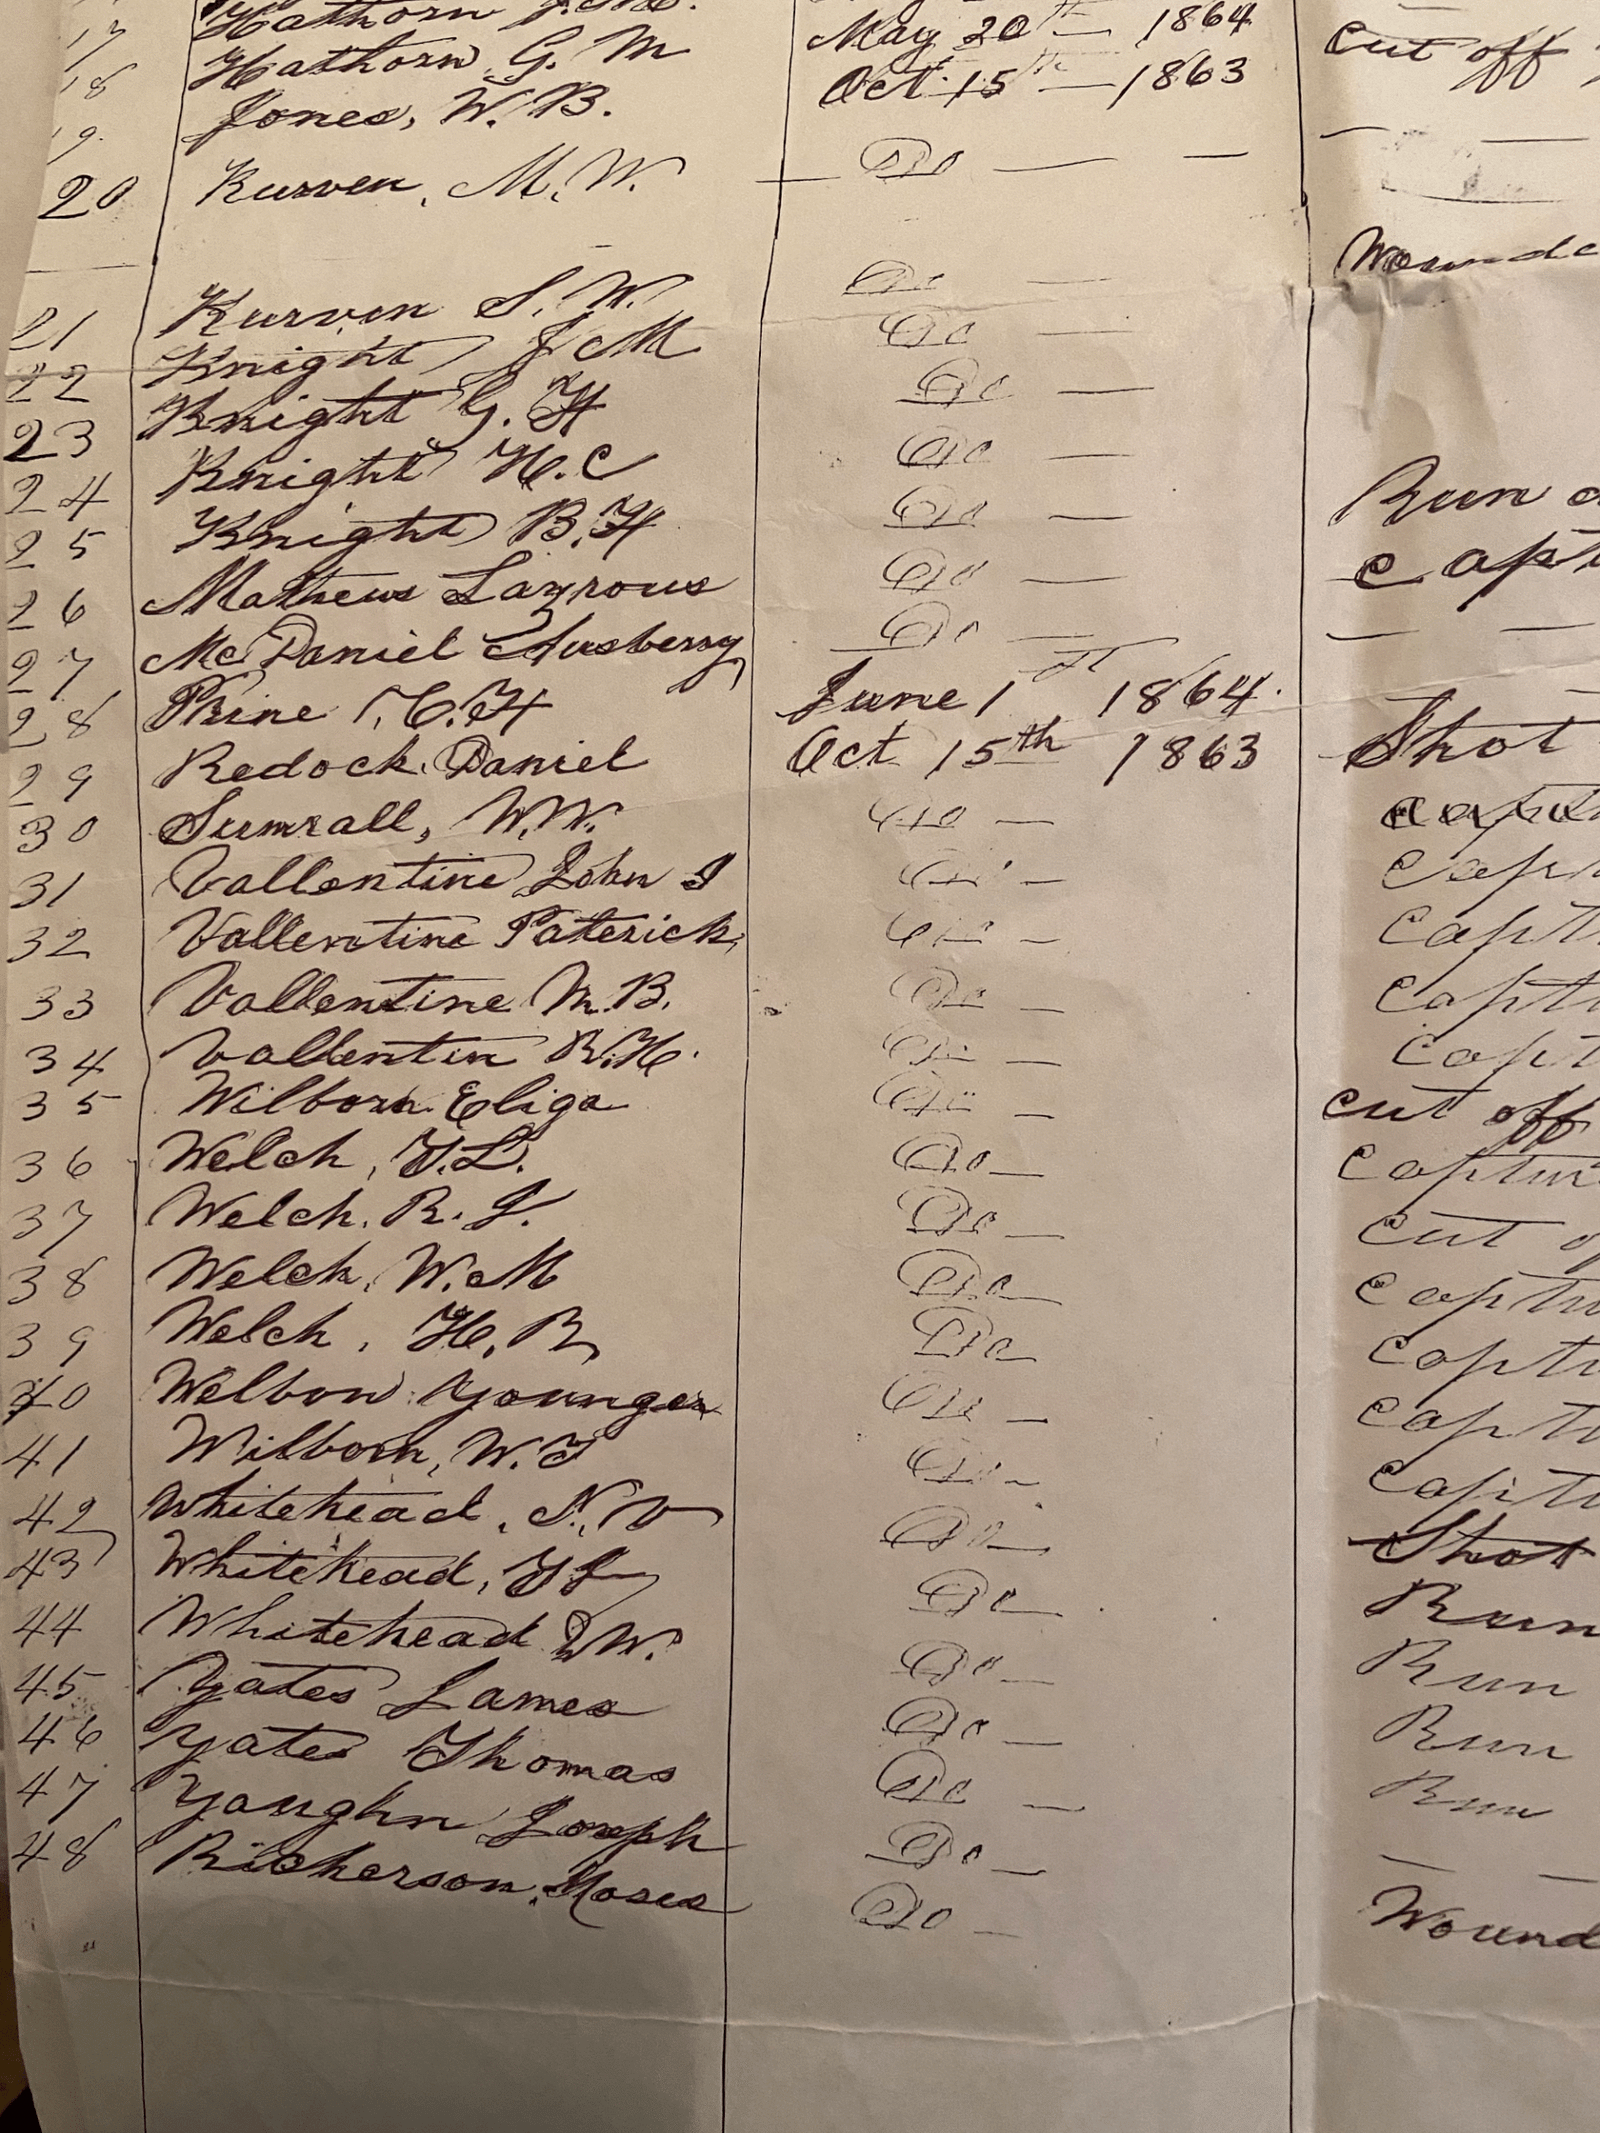 17 Hathorn
18 Hathorn G. M May 20th — 1864 cut off
19. Jones, W. B. Oct. 15th — 1863
20 Kurven, M. W. — Do — —
21 Kurven S. W. Do — Wounde
22 Knight J M Do —
23 Knight G. H Do —
24 Knight H. C Do — Run
25 Knight B. H Do — Capt
26 Mathews Lazrous Do —
27 McDaniel Ausberry Do — — —
28 Prine, C. H June 1st 1864.
29 Redock, Daniel Oct 15th 1863 Shot
30 Sumrall, W. W. Do — captu
31 Vallentine John J Do — Capt
32 Vallentine Paterick, Do — Capt
33 Vallentine M. B. Do — Capt
34 Vallentin R. H. Do — Capt
35 Wilborn Eliga Do — cut off
36 Welch, T. L. Do — Captur
37 Welch, R. J. Do — cut o
38 Welch, W. M Do — Captu
39 Welch, H. R, Do — Captu
40 Welbon Younger Do — Captu
41 Wilborn, W. T Do — Captu
42 Whitehead, N. V Do — Shot
43 Whitehead, T J Do — Run
44 Whitehead D W. Do — Run
45 Yates James Do — Run
46 Yates Thomas Do — Run
47 Yaughn Joseph Do — — —
48 Richerson, Moses Do — Wound